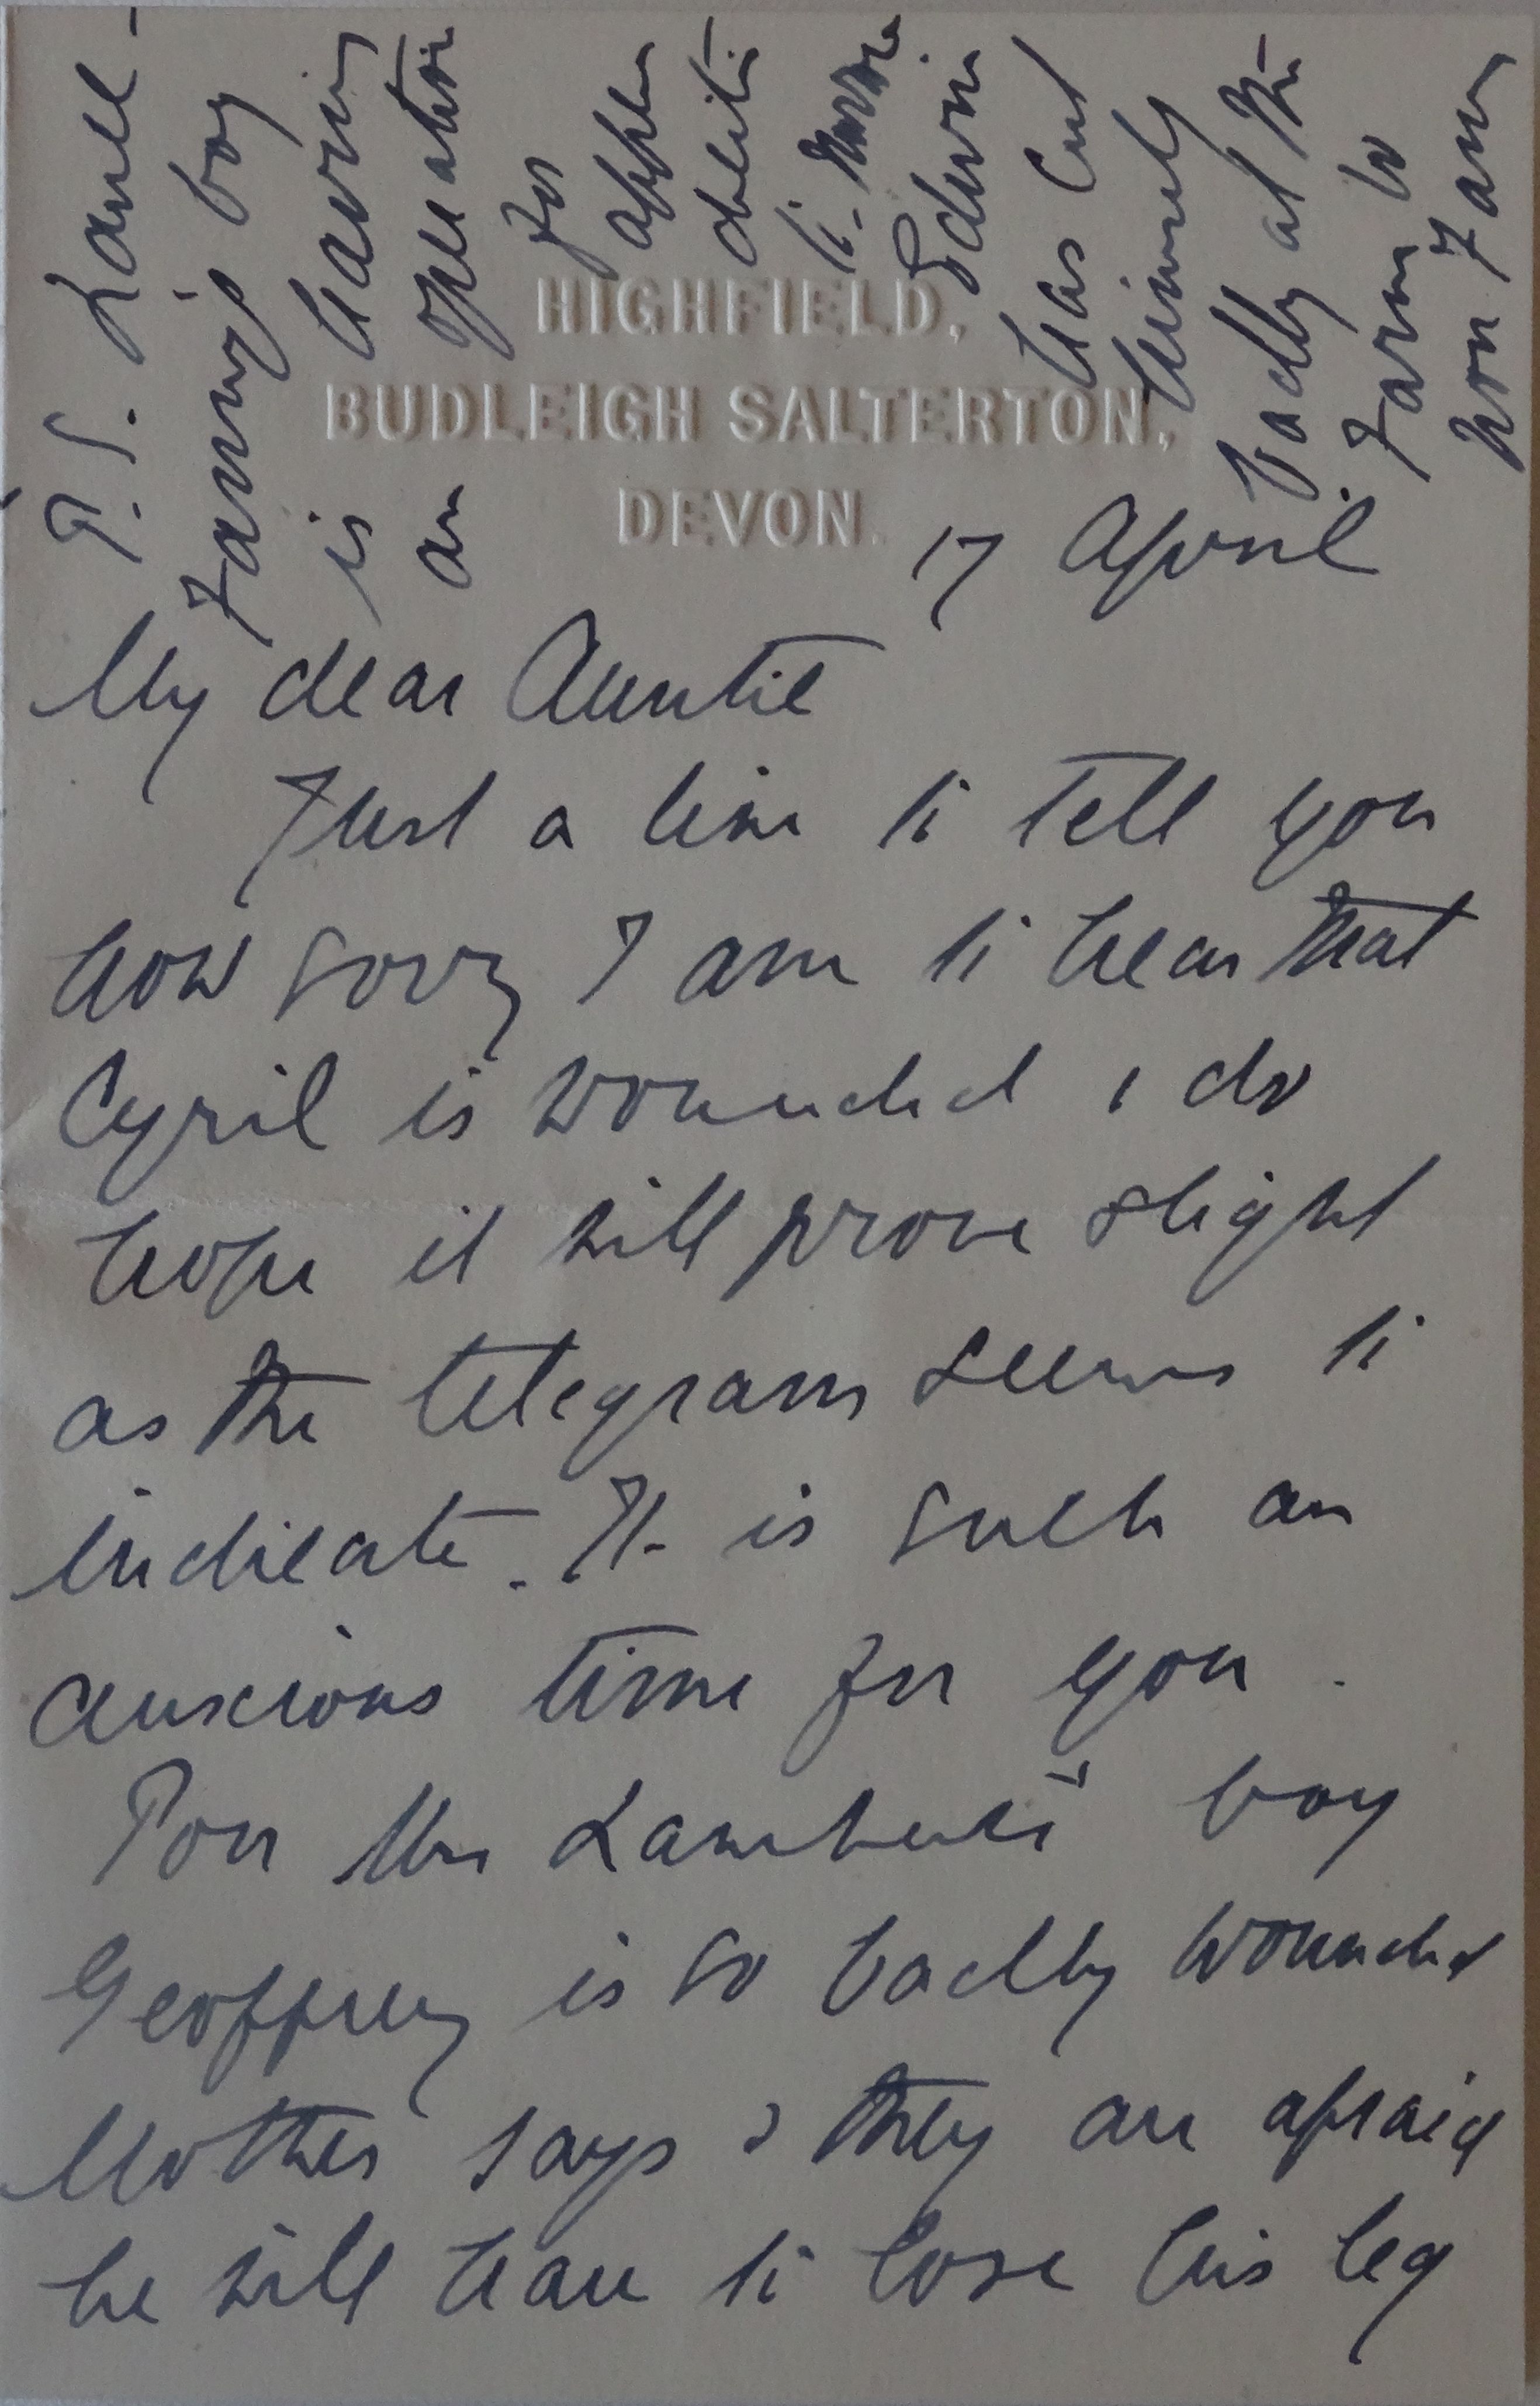 HIGHFIELD,
BUDLEIGH SALTERTON,
DEVON.
17 April
My dear Auntie
Just a line to tell you
how sorry I am to hear that
Cyril is wounded & do
hope it will prove slight
as the telegram seems to
indicate. It is such an
anxious time for you.
Poor Mrs Lamberts" boy
Geoffrey is so badly wounded
Mother says & they are afraid
he will have to lose his leg
P.S.
Fanning's boy
is having
an operation
for
appen
dicitis
to-morrow
Edwin
has cut
himself
badly at the
farm so
won 7 am